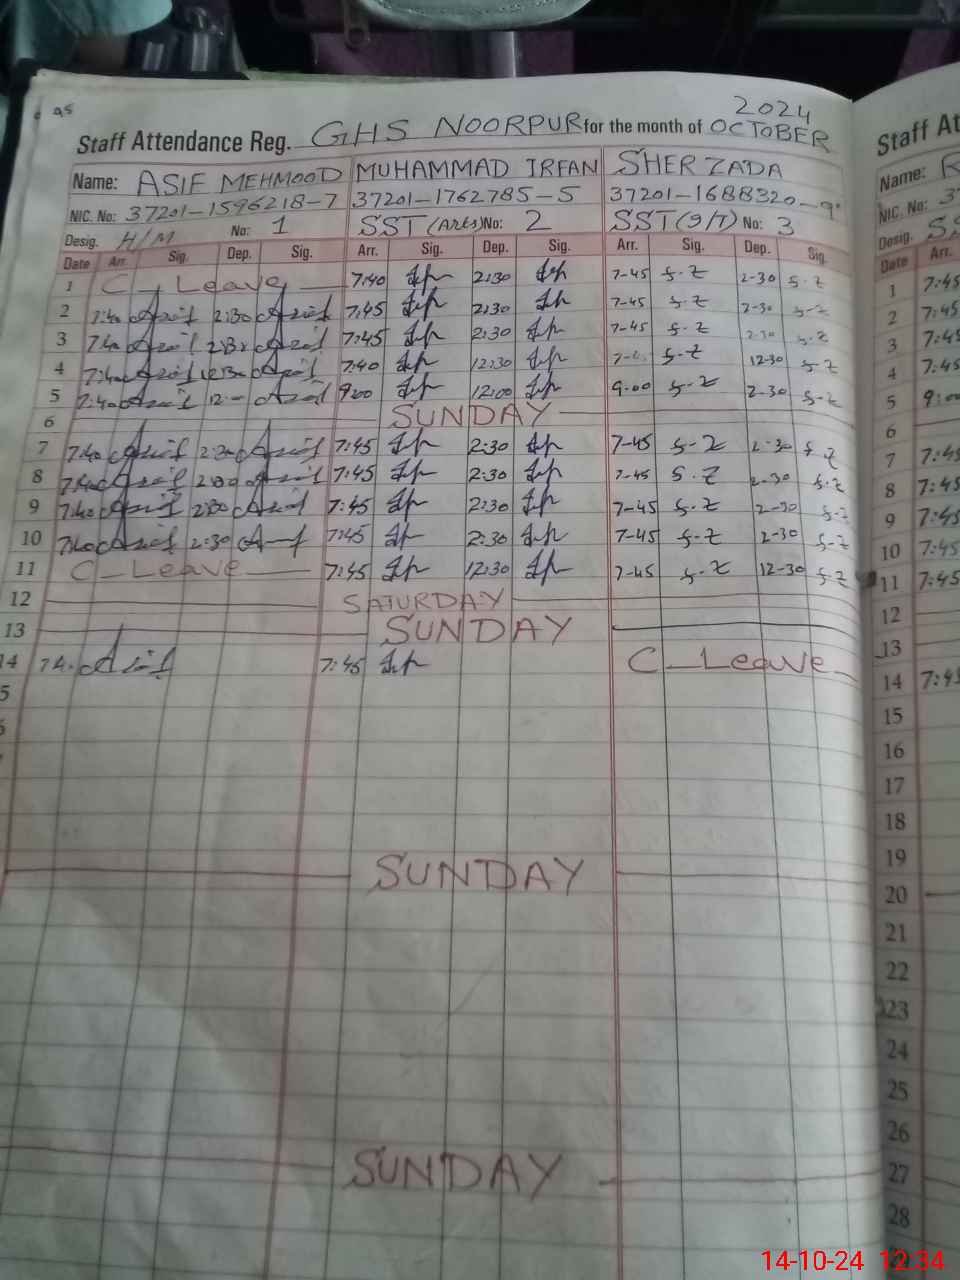 95
2024
Staff Attendance Reg. GHS NOORPUR for the month of OCTOBER
Name: ASIF MEHMOOD MUHAMMAD IRFAN SHER ZADA
NIC. No: 37201-1596218-7 37201-1762785-5 37201-1688320-9
Desig. H/M No: 1 SST (Arts) No: 2 SST No: 3
Date Arr. Sig. Dep. Sig. Arr. Sig. Dep. Sig. Arr. Sig. Dep. Sig.
1 C-Leave 7:40 2:30 7-45 S-Z 2-30 S-Z
2 7:40 Asif 2:30 Asif 7:45 2:30 7-45 S-Z 2-30 S-Z
3 7:40 Asif Asif 7:45 2:30 7-45 S-Z 2-30 S-Z
4 7:40 Asif Asif 7:40 12:30 S-Z 12-30 S-Z
5 7:40 Asif Asif 9:00 12:00 9-00 S-Z 2-30 S-Z
6 SUNDAY
7 7:40 Asif 2:30 Asif 7:45 2:30 7-45 S-Z 2-30 S-Z
8 7:40 Asif Asif 7:45 2:30 7-45 S-Z 2-30 S-Z
9 7:40 Asif 2:30 Asif 7:45 2:30 7-45 S-Z 2-30 S-Z
10 7:40 Asif 2:30 7:45 2:30 7-45 S-Z 2-30 S-Z
11 C-Leave 7:45 12:30 7-45 S-Z 12-30 S-Z
12 SATURDAY
13 SUNDAY
14 Asif 7:45 C-Leave
SUNDAY
SUNDAY
Staff At
Name:
NIC. No: 37
Desig.
Date Arr.
1 7:45
2 7:45
3 7:45
4 7:45
5 9:00
6
7 7:45
8 7:45
9 7:45
10 7:45
11 7:45
12
13
14 7:45
15
16
17
18
19
20
21
22
23
24
25
26
27
28
14-10-24 12:34